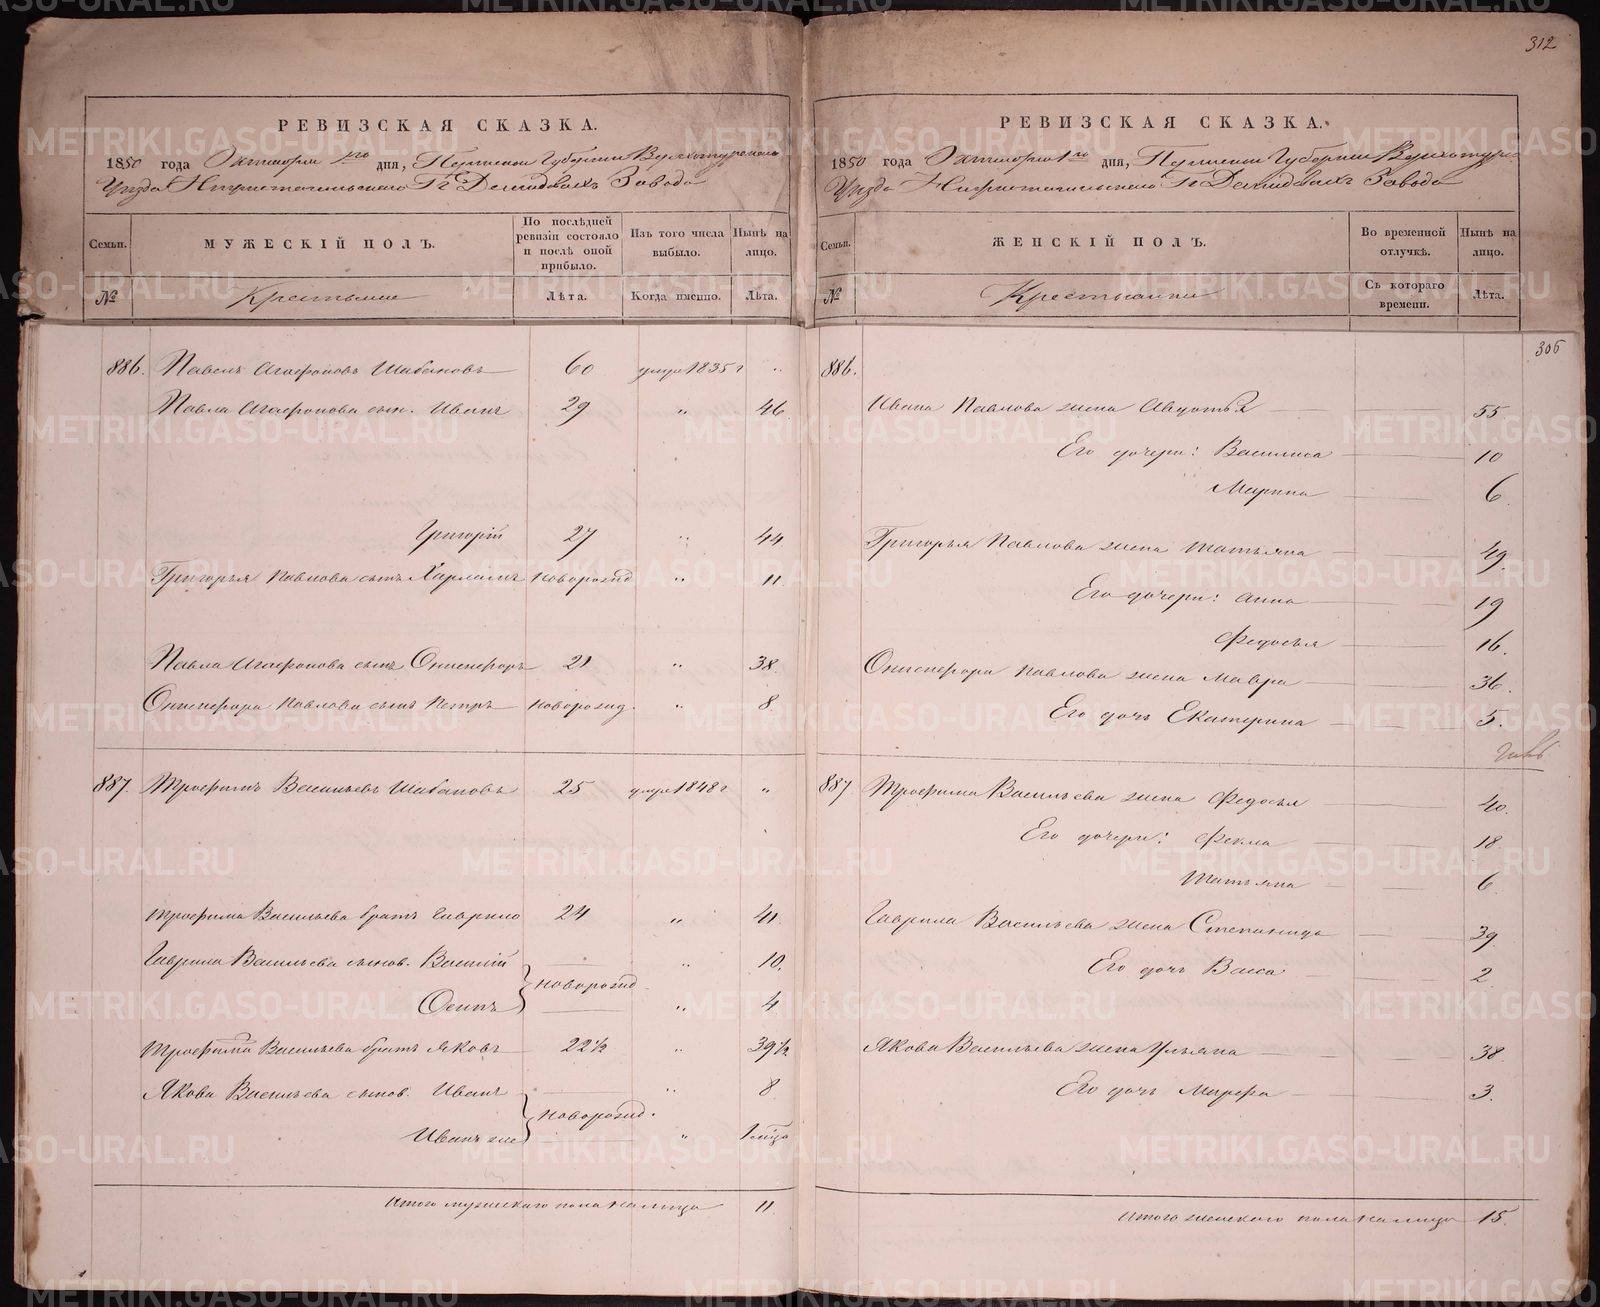 312
РЕВИЗСКАЯ СКАЗКА.
1850 года Октября 1го дня, Пермской Губернии Верхотурскаго
Уезда Нижнетагильскаго Гг Демидовыхъ Завода
Семьи.
МУЖЕСКІЙ ПОЛЪ.
По послѣдней ревизіи состояло и послѣ оной прибыло.
Изъ того числа выбыло.
Нынѣ на лицо.
№
Крестьяне
Лѣта.
Когда именно.
Лѣта.
886. Павелъ Агафоновъ Шабановъ 60 умре 1835 г "
Павла Агафонова сын. Иванъ 29 " 46.
Григорій 27 " 44
Григорья Павлова сынъ Харлампъ новорожд " 11.
Павла Агафонова сынъ Онисифоръ 21 " 38.
Онисифора Павлова сынъ Петръ новорожд. " 8
887. Трофимъ Васильевъ Шабановъ 25 умре 1848 г "
Трофима Васильева братъ Гаврило 24 " 41.
Гаврила Васильева сынов. Василій " 10.
новорожд.
Осипъ " 4
Трофима Васильева братъ Яковъ 22½ " 39½
Якова Васильева сынов. Иванъ " 8
новорожд.
Иванъ же " 1 мѣся
Итого мужескаго пола на лицо 11.
РЕВИЗСКАЯ СКАЗКА.
1850 года Октября 1го дня, Пермской Губернии Верхотурс
Уезда Нижнетагильскаго Гг Демидовыхъ Завода
Семьи.
ЖЕНСКІЙ ПОЛЪ.
Во временной отлучкѣ.
Нынѣ на лицо.
№
Крестьянки
Съ котораго времени.
Лѣта.
306
886.
Ивана Павлова жена Авдотья 55
Его дочери: Василиса 10
Марина 6.
Григорья Павлова жена Татьяна 49.
Его дочери: Анна 19
Федосья 16.
Онисифора Павлова жена Мавра 36.
Его дочь Екатерина 5.
887 Трофима Васильева жена Федосья 40.
Его дочери: Фекла 18
Татьяна 6.
Гаврила Васильева жена Степанида 39
Его дочь Васса 2
Якова Васильева жена Ульяна 38
Его дочь Марфа 3.
Итого женскаго пола на лицо 15.
METRIKI.GASO-URAL.RU